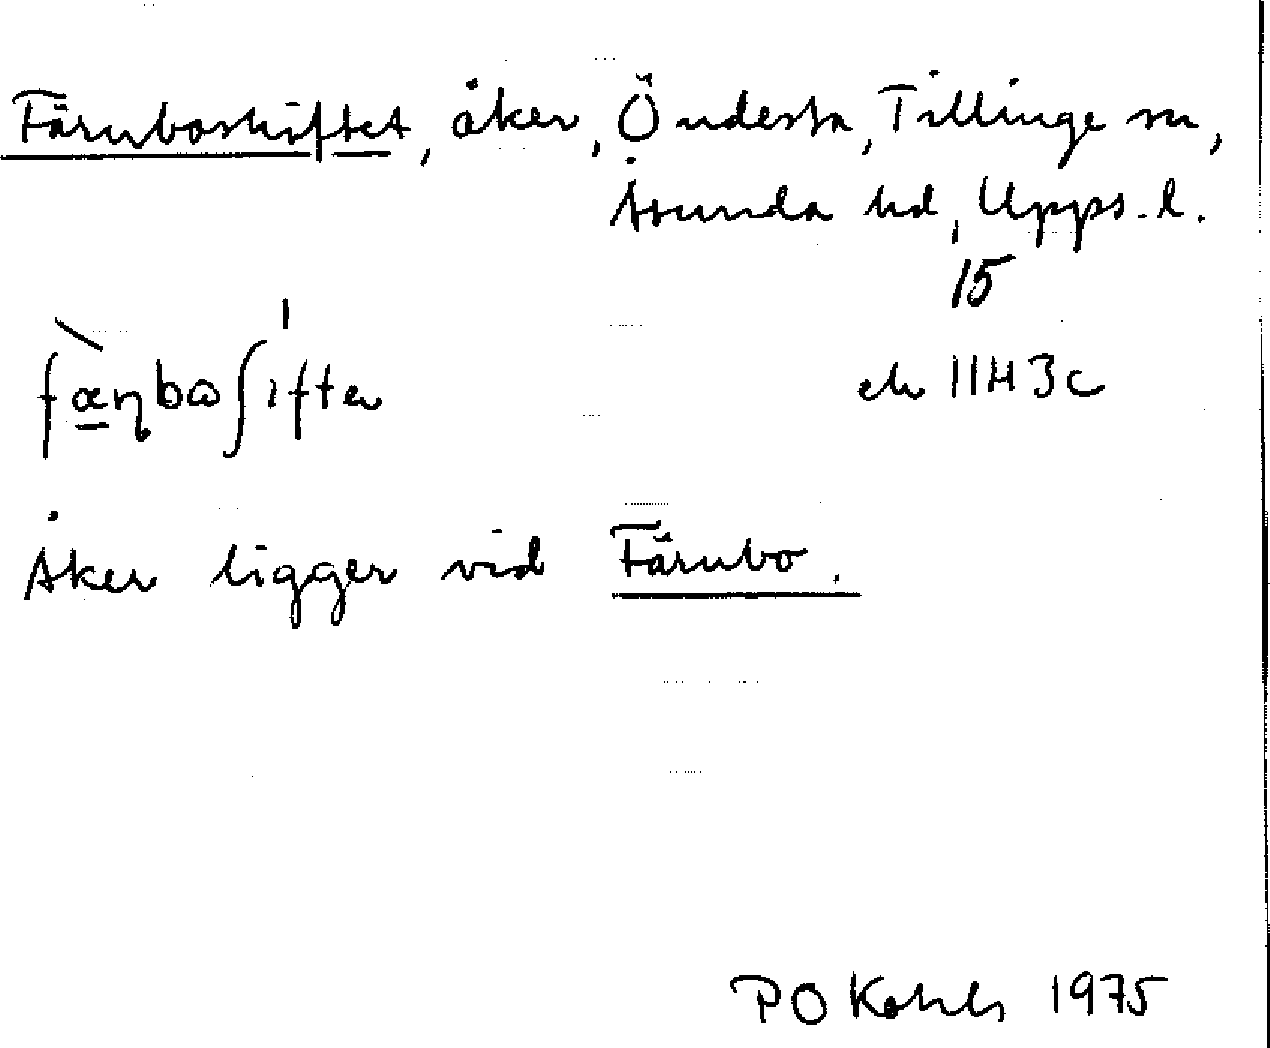 Färnboskiftet, åker, Öndesta, Tillinge sn,
Åsunda hd, Upps. l.
15
ek 11H 3c
Åker ligger vid Färnbo.
1975